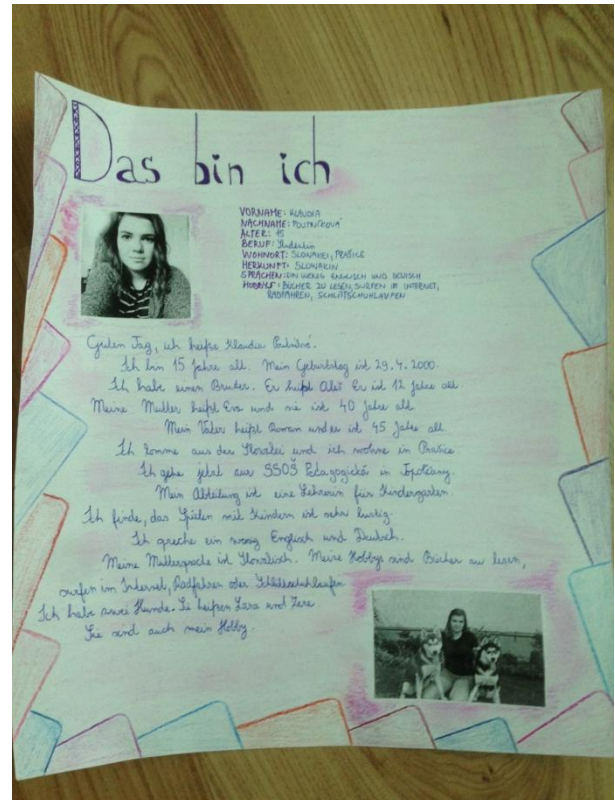 Das bin ich
VORNAME: KLAUDIA
NACHNAME:
ALTER: 15
BERUF: Studentin
WOHNORT: SLOWAKEI, PRAŠICE
HERKUNFT: SLOWAKIN
SPRACHEN: EIN WENIG ENGLISCH UND DEUTSCH
HOBBYS: BÜCHER ZU LESEN, SURFEN IM INTERNET,
RADFAHREN, SCHLITSCHUHLAUFEN
Guten Tag, ich heiße Klaudia
Ich bin 15 Jahre alt. Mein Geburtstag ist 29.4.2000.
Ich habe einen Bruder. Er heißt Er ist 12 Jahre alt.
Meine Mutter heißt Eva und sie ist 40 Jahre alt
Mein Vater heißt Roman und er ist 45 Jahre alt
Ich komme aus der Slovakei und ich wohne in Prašice.
Ich gehe jetzt zur SSOŠ Pedagogická in Topoľčany.
Mein Abteilung ist eine Lehrerin für Kindergarten.
Ich finde, das Spielen mit Kindern ist sehr lustig.
Ich spreche ein wenig Englisch und Deutsch.
Meine Muttersprache ist Slovakisch. Meine Hobbys sind Bücher zu lesen,
surfen im Internet, Radfahren oder
Ich habe zwei Hunde. Sie heißen Lara und Zara
Sie sind auch mein Hobby.